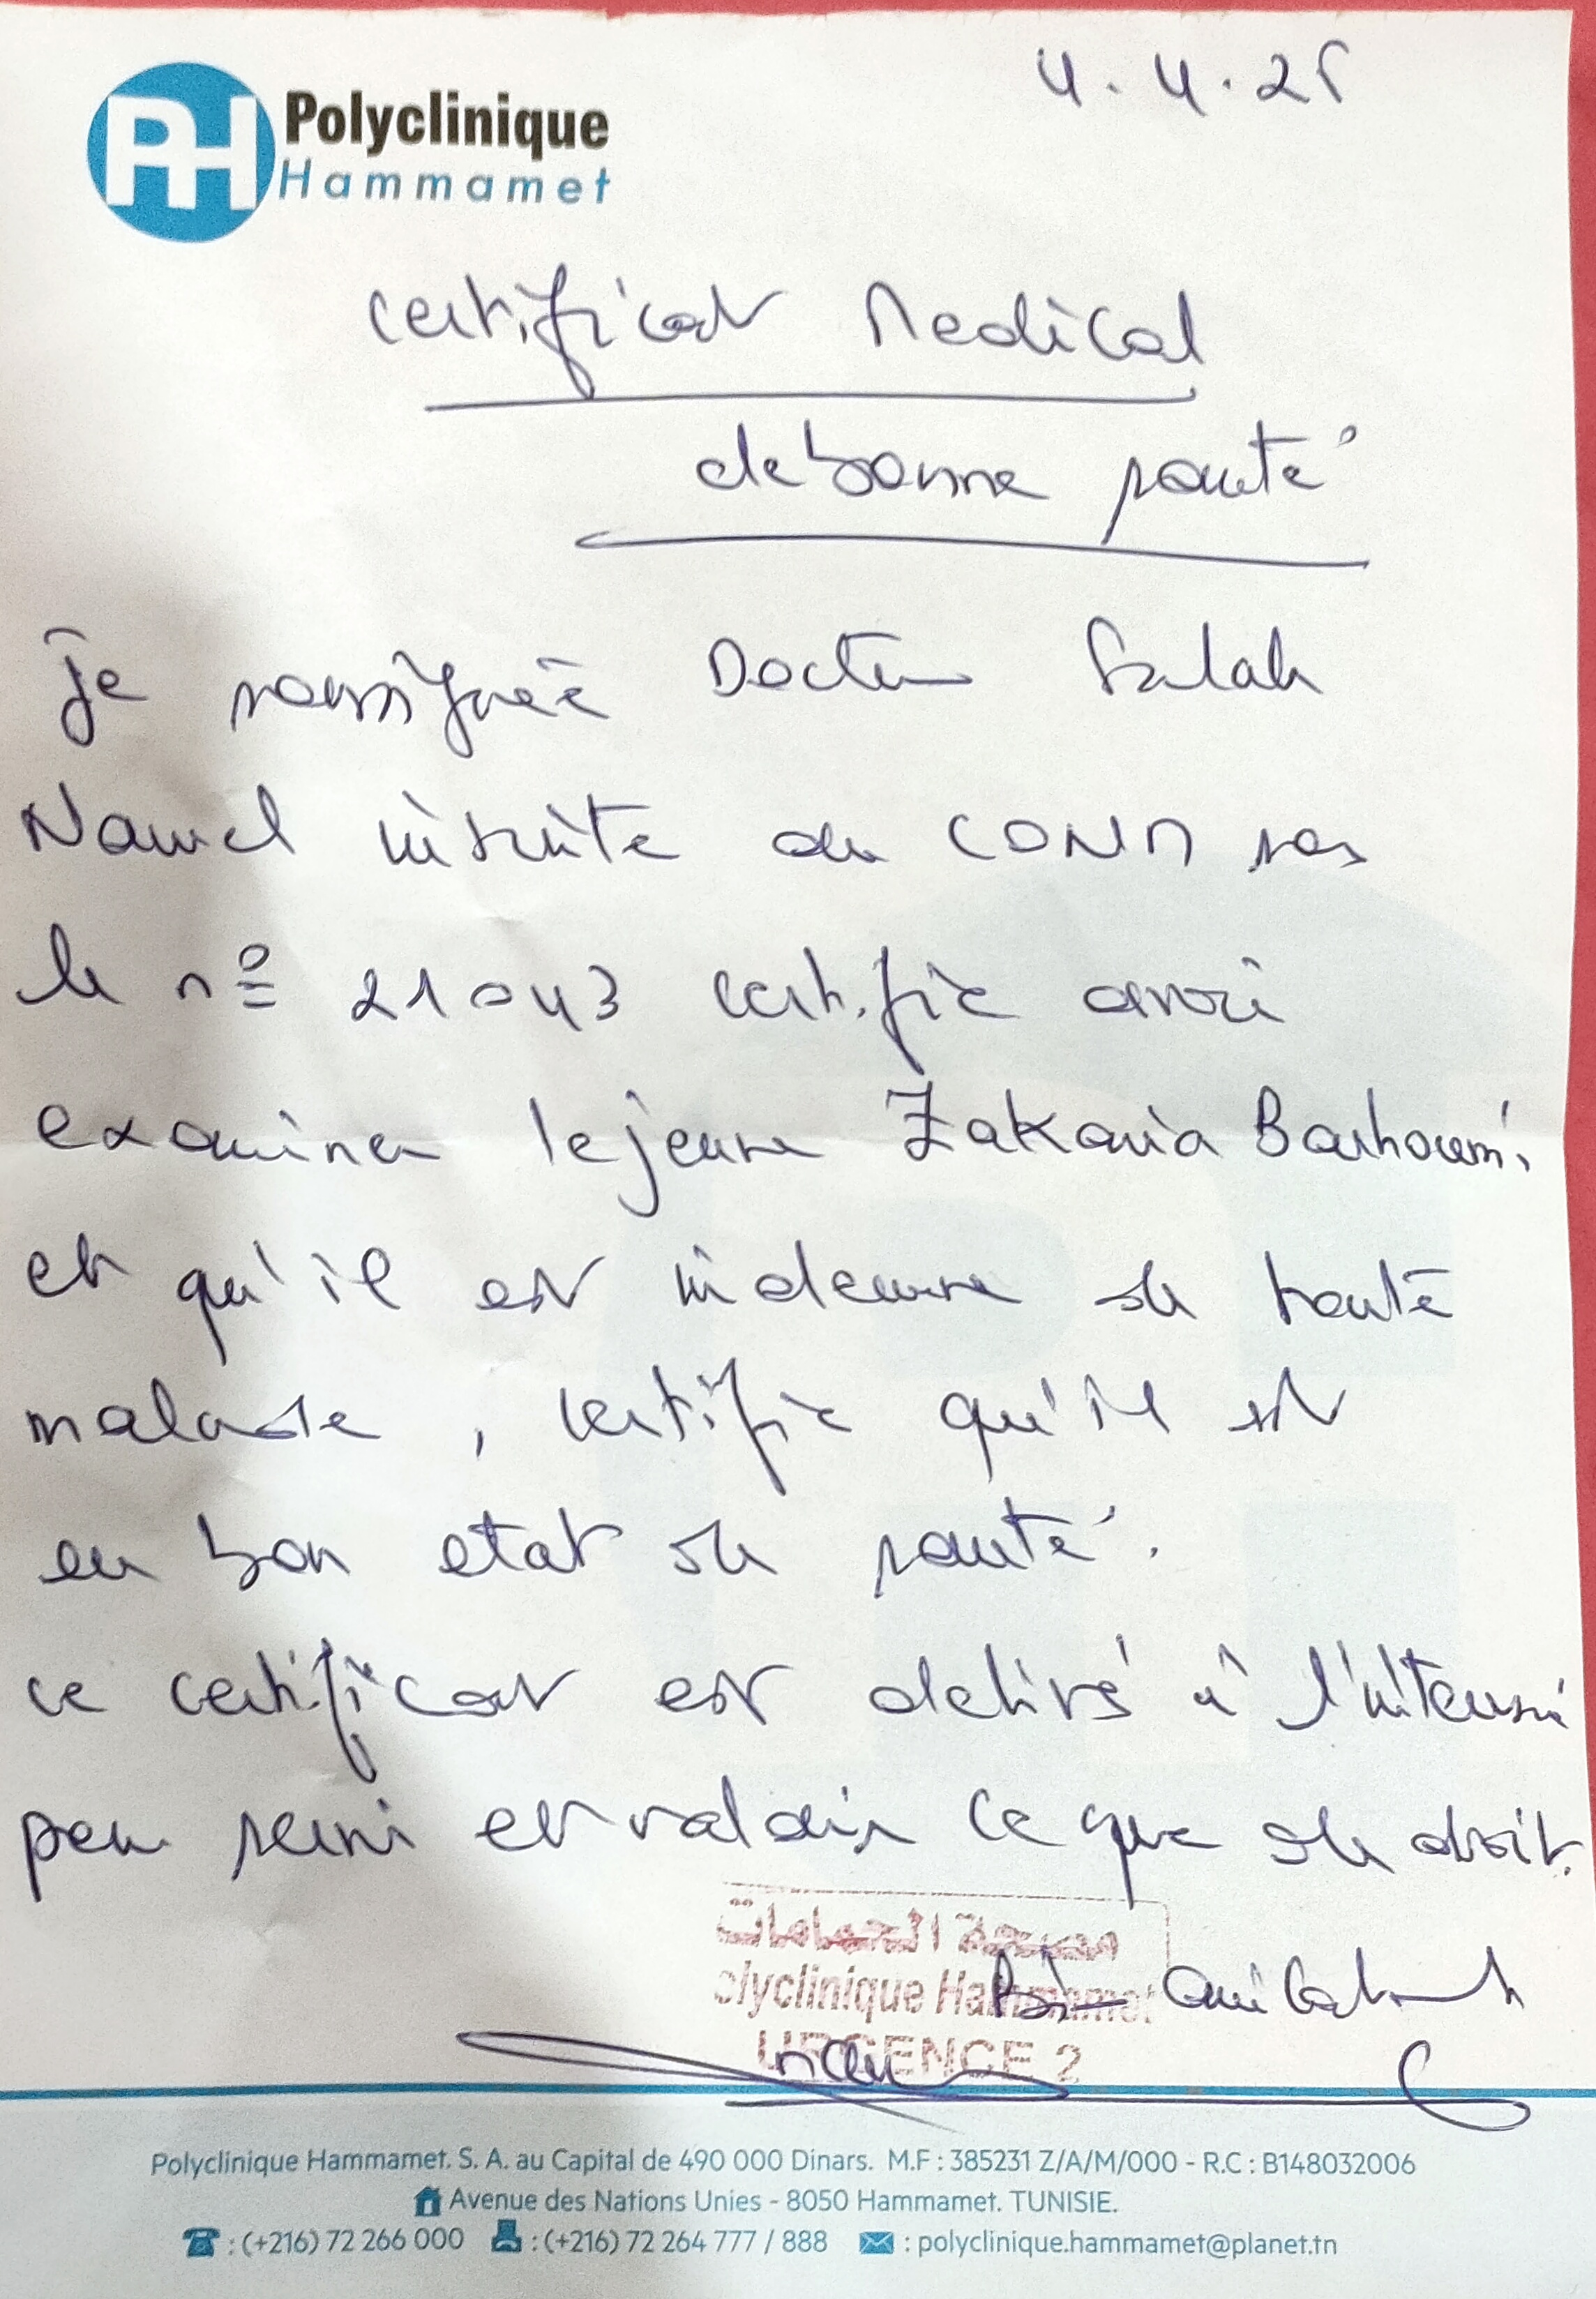 4.4.25
PH Polyclinique
Hammamet
Certificat Medical
de bonne santé
Je soussignée Docteur Salah
Nawel inscrite au CONM sous
le n° 21043 certifie avoir
examiner le jeune Zakaria Barhoumi
et qu'il est indemne de toute
maladie, certifie qu'il est
en bon etat de santé.
ce certificat est delivré à l'interessé
pour servir et valoir ce que de droit.
مصحة الحمامات
olyclinique Hammamet
URGENCE 2
Polyclinique Hammamet. S. A. au Capital de 490 000 Dinars. M.F : 385231 Z/A/M/000 - R.C : B148032006
Avenue des Nations Unies - 8050 Hammamet. TUNISIE.
: (+216) 72 266 000 : (+216) 72 264 777 / 888 : polyclinique.hammamet@planet.tn